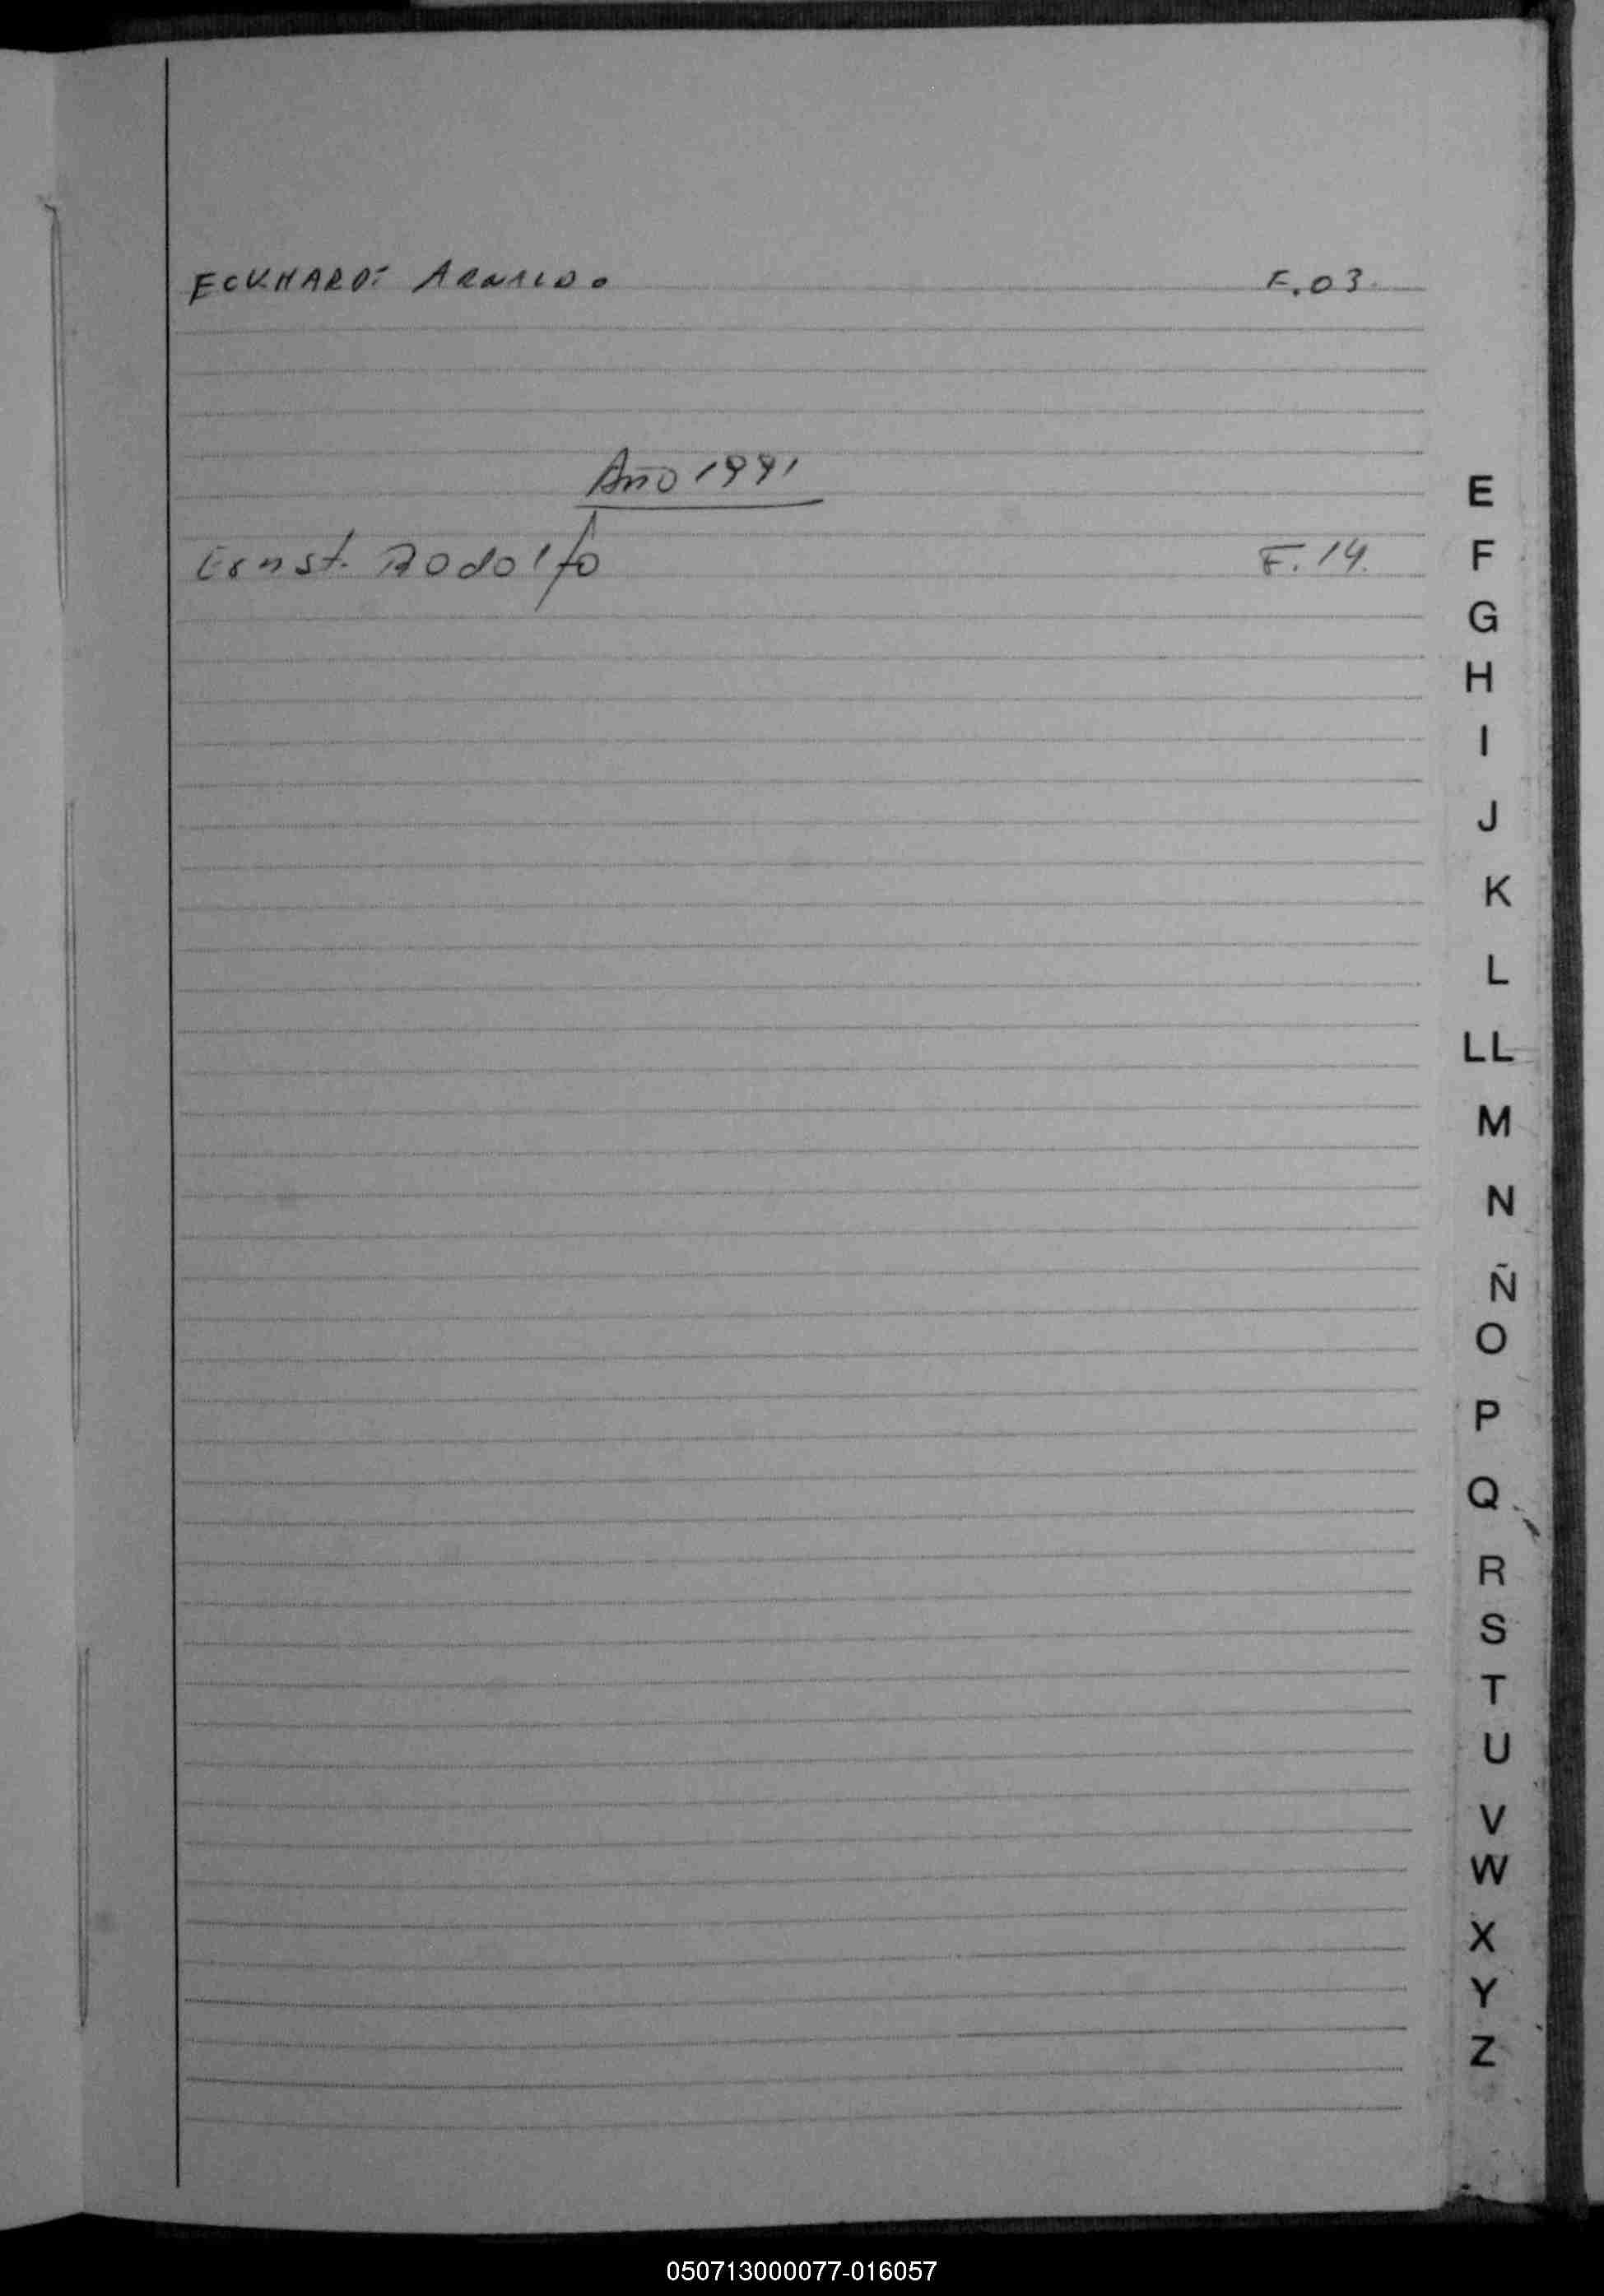 ECKHARDT ARNALDO F.03.
Año 1991
Ernst. Rodolfo F.14.
E
F
G
H
I
J
K
L
LL
M
N
Ñ
O
P
Q
R
S
T
U
V
W
X
Y
Z
050713000077-016057